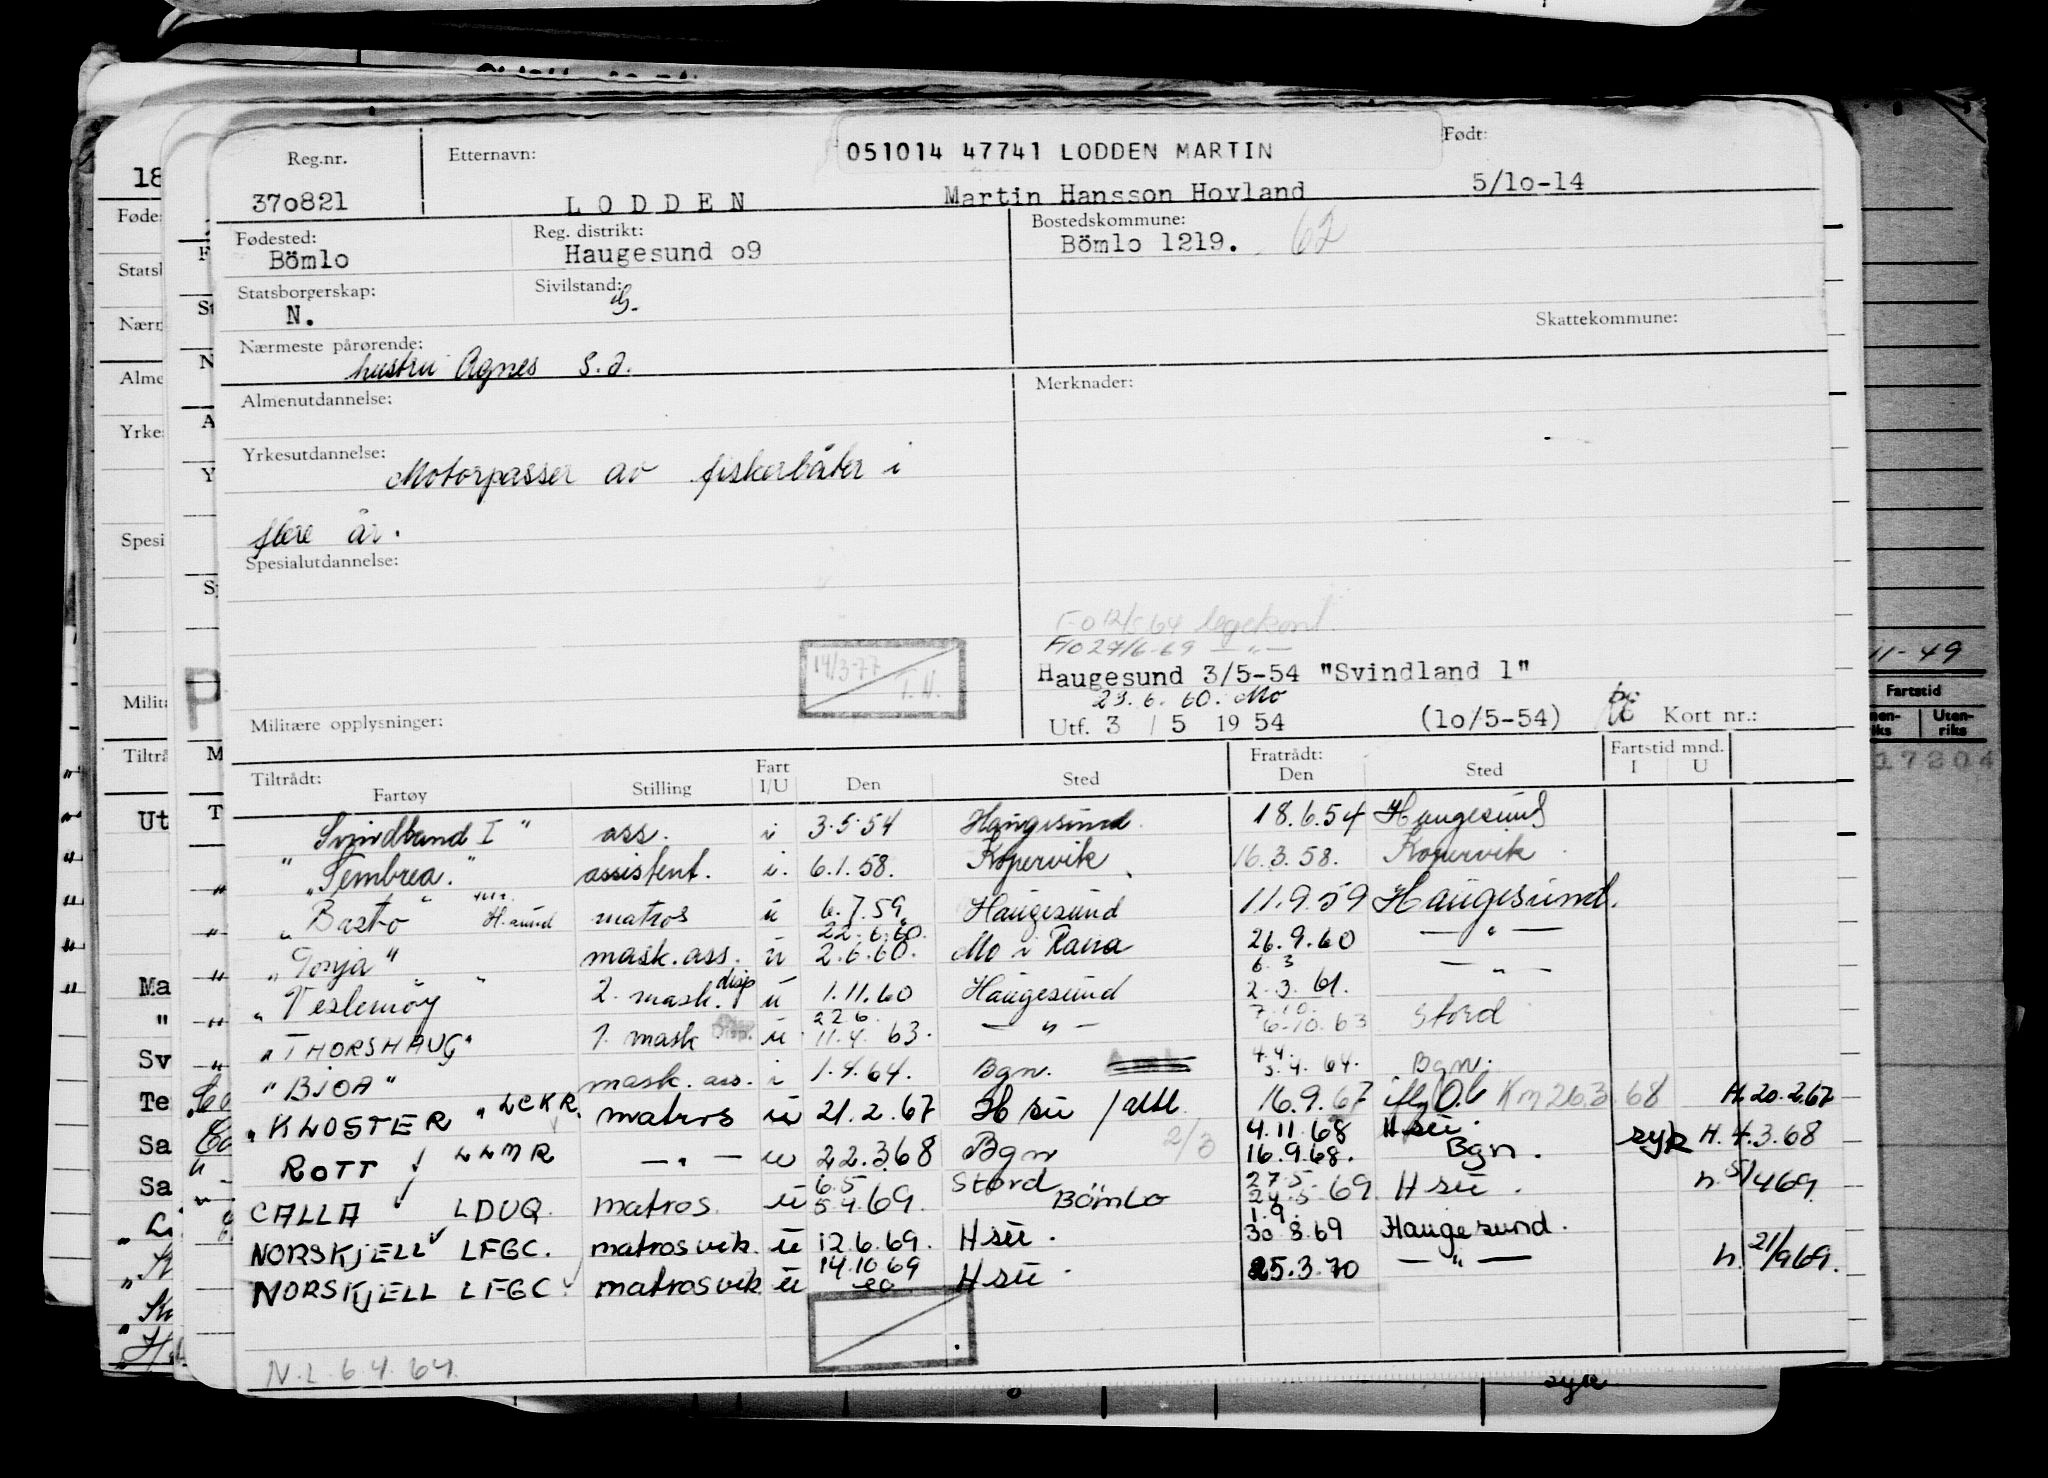 051014 47741 LODDEN MARTIN
Reg.nr. Etternavn: Født:
370821 LODDEN Martin Hansson Hovland 5/10-14
Fødested: Reg. distrikt: Bostedskommune:
Bömlo Haugesund o9 Bömlo 1219. 62
Statsborgerskap: Sivilstand:
N. G.
Skattekommune:
Nærmeste pårørende:
hustru Agnes S.d.
Almenutdannelse: Merknader:
Yrkesutdannelse:
Motorpasser av fiskerbåter i
flere år.
Spesialutdannelse:
legekont.
F/o 27/6-69 — " —
14/3-77 T.N.
Haugesund 3/5-54 "Svindland 1"
23.6.60. Mo
Militære opplysninger: Utf. 3 / 5 1954 (1o/5-54) Kort nr.:
Tiltrådt: Fart Fratrådt: Fartstid mnd.
Fartøy Stilling I/U Den Sted Den Sted I U
Svindland I " ass. i 3.5.54 Haugesund 18.6.54 Haugesund
" Tembrea. " assistent. i. 6.1.58. Kopervik 16.3.58. Kopervik
" Bastø " H.sund matros u 6.7.59 Haugesund 11.9.59 Haugesund.
22.6.60.
" Tonja " mask.ass. u 2.6.60. Mo i Rana 26.9.60 — " —
6.3
" Veslemøy " 2. mask. disp u 1.11.60 Haugesund 2.3.61. — " —
22.6 7.10.
" THORSHAUG " 1. mask Disp. u 11.4.63. — " — 6.10.63 Stord
4.4.
" BJOA " mask. ass. i 1.4.64. Bgn. 3.4.64. Bgn.
" KLOSTER " LCKR. matros u 21.2.67 H su / 16.9.67 Km 26.3.68 H. 20.2.67
2/3 4.11.68 H su.
ROTT LLMR — " — u 22.3.68 Bgn 16.9.68. Bgn. syk H. 4.3.68
6.5 Stord 27.5
CALLA LDUQ. matros u 5.4.69. Bömlo 24.5.69. H su. h. 5/4 69.
1.9.
NORSKJELL LFGC. matrosvik. u 12.6.69. H su. 30.8.69 Haugesund.
14.10.69
NORSKJELL LFGC. matrosvik u H su. 25.3.70 — " — h. 21/9 69.
N.L. 6.4.64.
18
Føde
Stats
Nærm
Alme
Yrke
Spesi
Milit
Tiltrå
Ut
Ma
"
Sv
Te
Sa
Sa
P
11-49
Fartstid
Uten-
riks
17204
syk